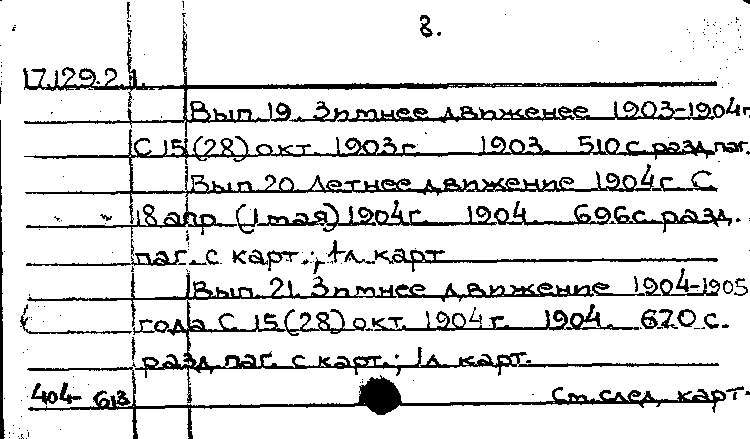 8.
17.129.2.1.
Вып 19. Зимнее движенее 1903-1904г
С 15 (28) окт. 1903г. 1903. 510 с. разд. паг.
Вып 20 Летнее движение 1904г. С
18 апр. (1 мая) 1904г. 1904. 696с. разд.
паг. с карт.; 1л. карт
Вып. 21. Зимнее движение 1904-1905
года С 15 (28) окт. 1904г. 1904. 670 с.
разд. паг. с карт.; 1л. карт.
404-613 См. след. карт.